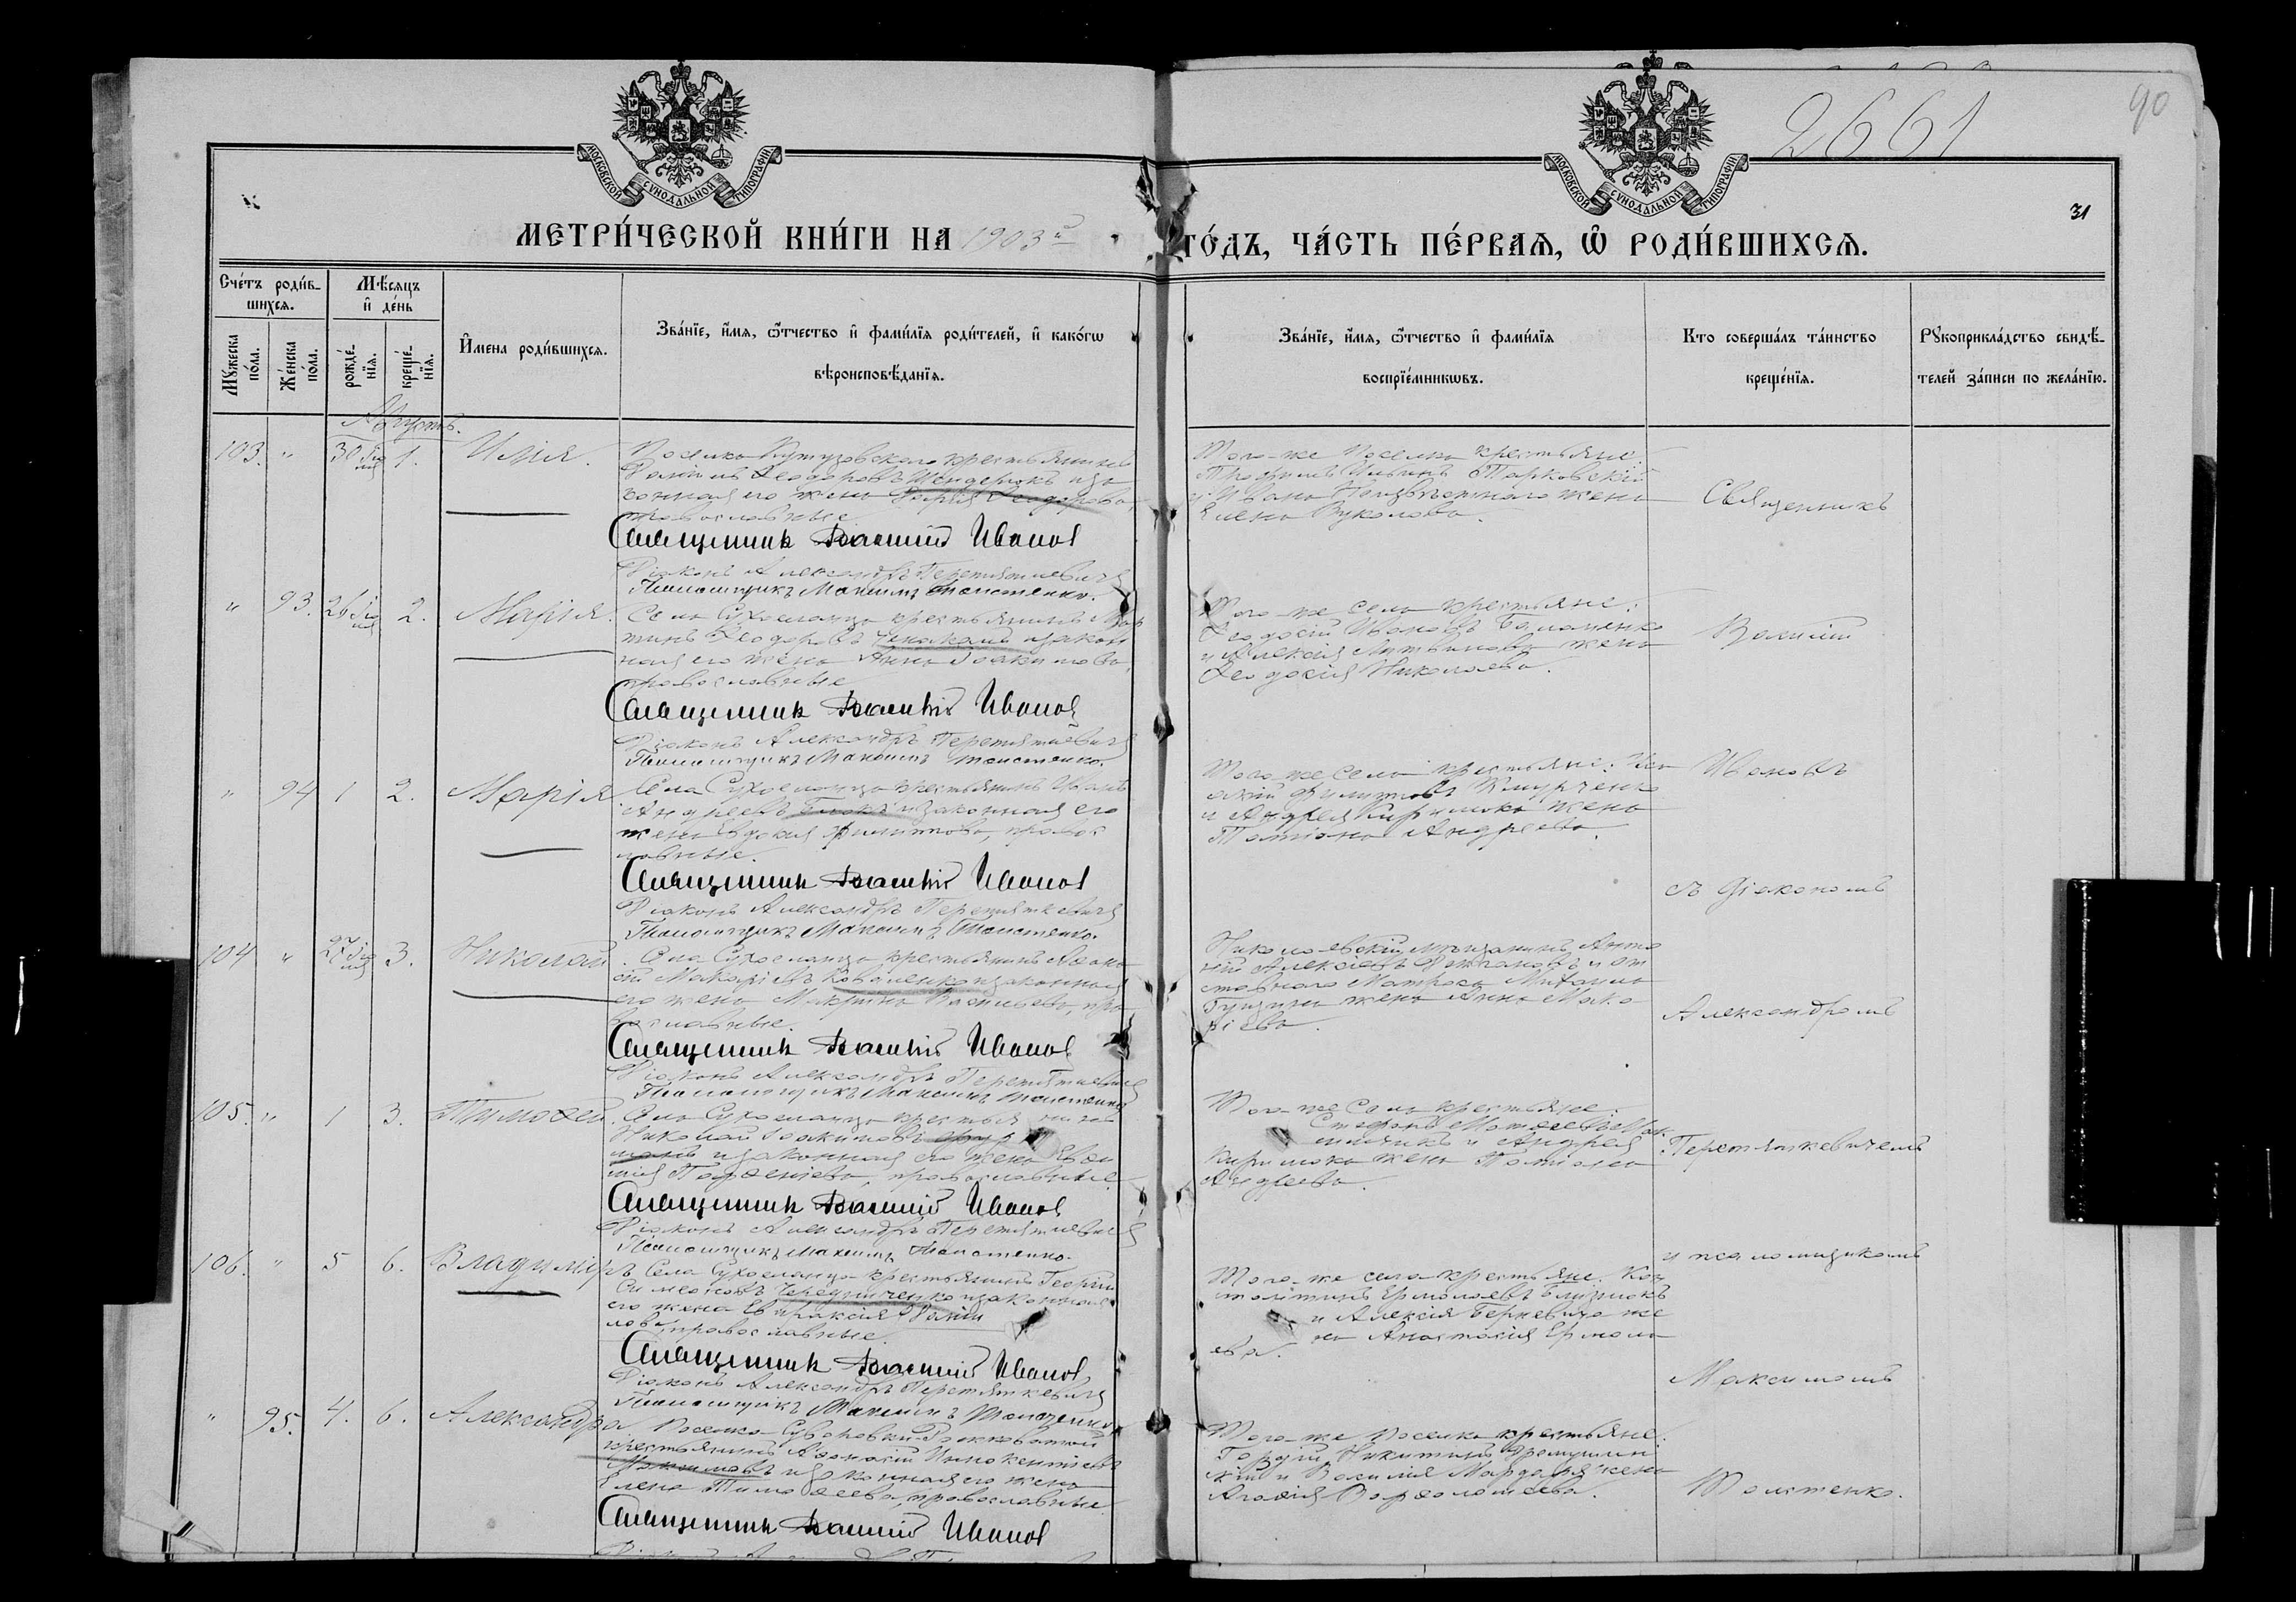 МОСКОВСКОЙ СѴНОДАЛЬНОЙ ТИПОГРАФІИ.
МОСКОВСКОЙ СѴНОДАЛЬНОЙ ТИПОГРАФІИ.
2661
90
31
МЕТРИ́ЧЕСКОЙ КНИ́ГИ НА 1903й
ГО́ДЪ, ЧА́СТЬ ПЕ́РВАЯ, Ѽ РОДИ́ВШИХСЯ.
Сче́тъ роди́в-
шихся.
Мѣ́сяцъ
и҆ де́нь
Мꙋ́жеска
по́ла.
Же́нска
по́ла.
рожде́-
нїя.
креще́-
нїя.
И҆мена роди́вшихся.
Зва́нїе, и҆́мя, ѻ҆́тчество и҆ фами́лїя роди́телей, и҆ како́гѡ
вѣроисповѣ́данїя.
Зва́нїе, и҆́мя, ѻ҆́тчество и҆ фами́лїя
воспрїе́мникѡвъ.
Кто соверша́лъ та́инство
креще́нїя.
Рꙋкоприкла́дство свидѣ́-
телей за́писи по жела́нїю.
Августъ.
103. " 30 Іюля 1. Илія.
Поселка Кутузовскаго крестьянинъ
Ѳеодоровъ и за
конная его жена Ѳеодорова,
православные.
Священникъ Василій Ивановъ
Діаконъ Александръ Перетяткевичъ
Псаломщикъ Максимъ Толстенко.
Того-же поселка крестьяне:
Трофимъ Ильинъ Тарковскій
и Ивана жена
Елена Вуколова.
Священникъ
" 93. 26 Іюля 2. Марія.
Села Сухоеланца крестьянинъ Мар
тинъ Ѳеодоровъ и закон
ная его жена Анна Іоакимова,
православные
Священникъ Василій Ивановъ
Діаконъ Александръ Перетяткевичъ
Псаломщикъ Максимъ Толстенко.
Того-же села крестьяне:
Ѳеодосій Ивановъ
и Алексія Литвинова жена
Ѳеодосія Николаева.
Василій
" 94 1 2. Марія
Села Сухоеланца крестьянинъ Иванъ
Андреевъ и законная его
жена Евдокія Филиппова, правос
лавные.
Священникъ Василій Ивановъ
Діаконъ Александръ Перетяткевичъ
Псаломщикъ Максимъ Толстенко.
Того-же села крестьяне:
Филипповъ
и Андрея Кирилюка жена
Татіана Андреева.
Ивановъ
съ діакономъ
104 " 27 Іюля 3. Николай
Села Сухоеланца крестьянинъ Аѳана
сій Макаріевъ Коваленко и законная
его жена Макрина Васильева, пра
вославные.
Священникъ Василій Ивановъ
Діаконъ Александръ Перетяткевичъ
Псаломщикъ Максимъ Толстенко
Николаевскій мѣщанинъ Анто
ній Алексіевъ и от
ставного матроса Михаила
жена Анна Мака
ріева.
Александромъ
105. " 1 3. Тимоѳей.
Села Сухоеланца крестьянинъ
Николай Іоакимовъ
и законная его жена Евѳи
мія Парѳеніева, православные.
Священникъ Василій Ивановъ
Діаконъ Александръ Перетяткевичъ
Псаломщикъ Максимъ Толстенко.
Того-же села крестьяне:
Стефанъ Матѳеевъ
и Андрея
Кирилюка жена Татіана
Андреева.
Перетяткевичемъ
106. " 5 6. Владиміръ
Села Сухоеланца крестьянинъ Георгій
Симеоновъ Чередниченко и законная
его жена Евпраксія Даніи
лова, православные.
Священникъ Василій Ивановъ
Діаконъ Александръ Перетяткевичъ
Псаломщикъ Максимъ Толстенко
Того-же села крестьяне: Кон
стантинъ Ермолаевъ Близнюкъ
и Алексія же
на Анастасія Ермола
ева.
и псаломщикомъ
Максимомъ
" 95. 4. 6. Александра
Поселка Суворовки
крестьянинъ Аѳанасій Иннокентіевъ
Максимовъ и законная его жена
Елена Тимоѳеева, православные
Священникъ Василій Ивановъ
Того-же поселка крестьяне:
Гордій Никитинъ
и Василія жена
Агаѳія Варѳоломеева.
Толстенко.